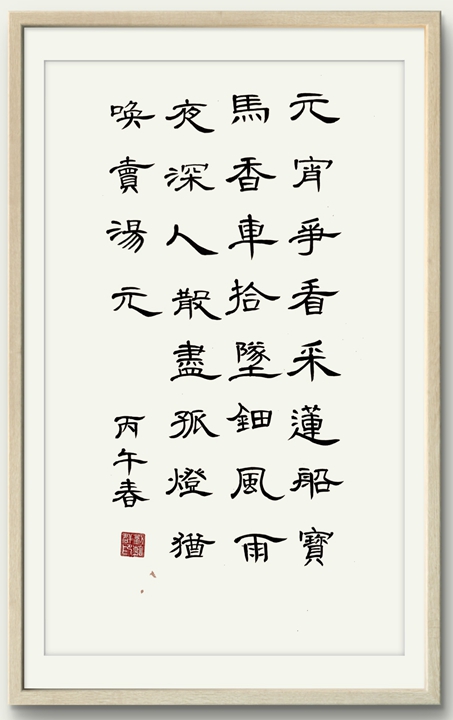 元宵爭看采蓮船寶
馬香車拾墜鈿風雨
夜深人散盡孤燈猶
喚賣湯元
丙午春